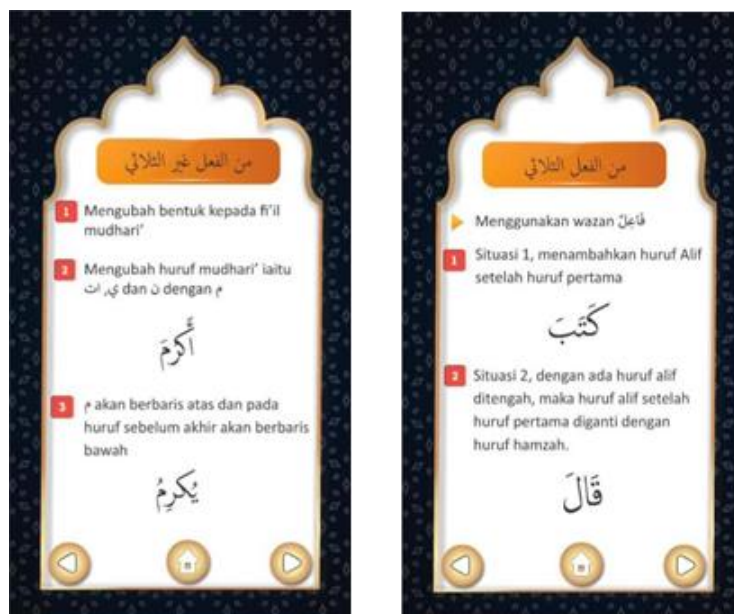 من الفعل غير الثلاثي
1 Mengubah bentuk kepada fi'il
mudhari'
2 Mengubah huruf mudhari' iaitu
ي, ات dan ن dengan م
أَكْرَمَ
3 م akan berbaris atas dan pada
huruf sebelum akhir akan berbaris
bawah
يُكرِمُ
من الفعل الثلاثي
Menggunakan wazan فَاعِلٌ
1 Situasi 1, menambahkan huruf Alif
setelah huruf pertama
كَتَبَ
2 Situasi 2, dengan ada huruf alif
ditengah, maka huruf alif setelah
huruf pertama diganti dengan
huruf hamzah.
قَالَ